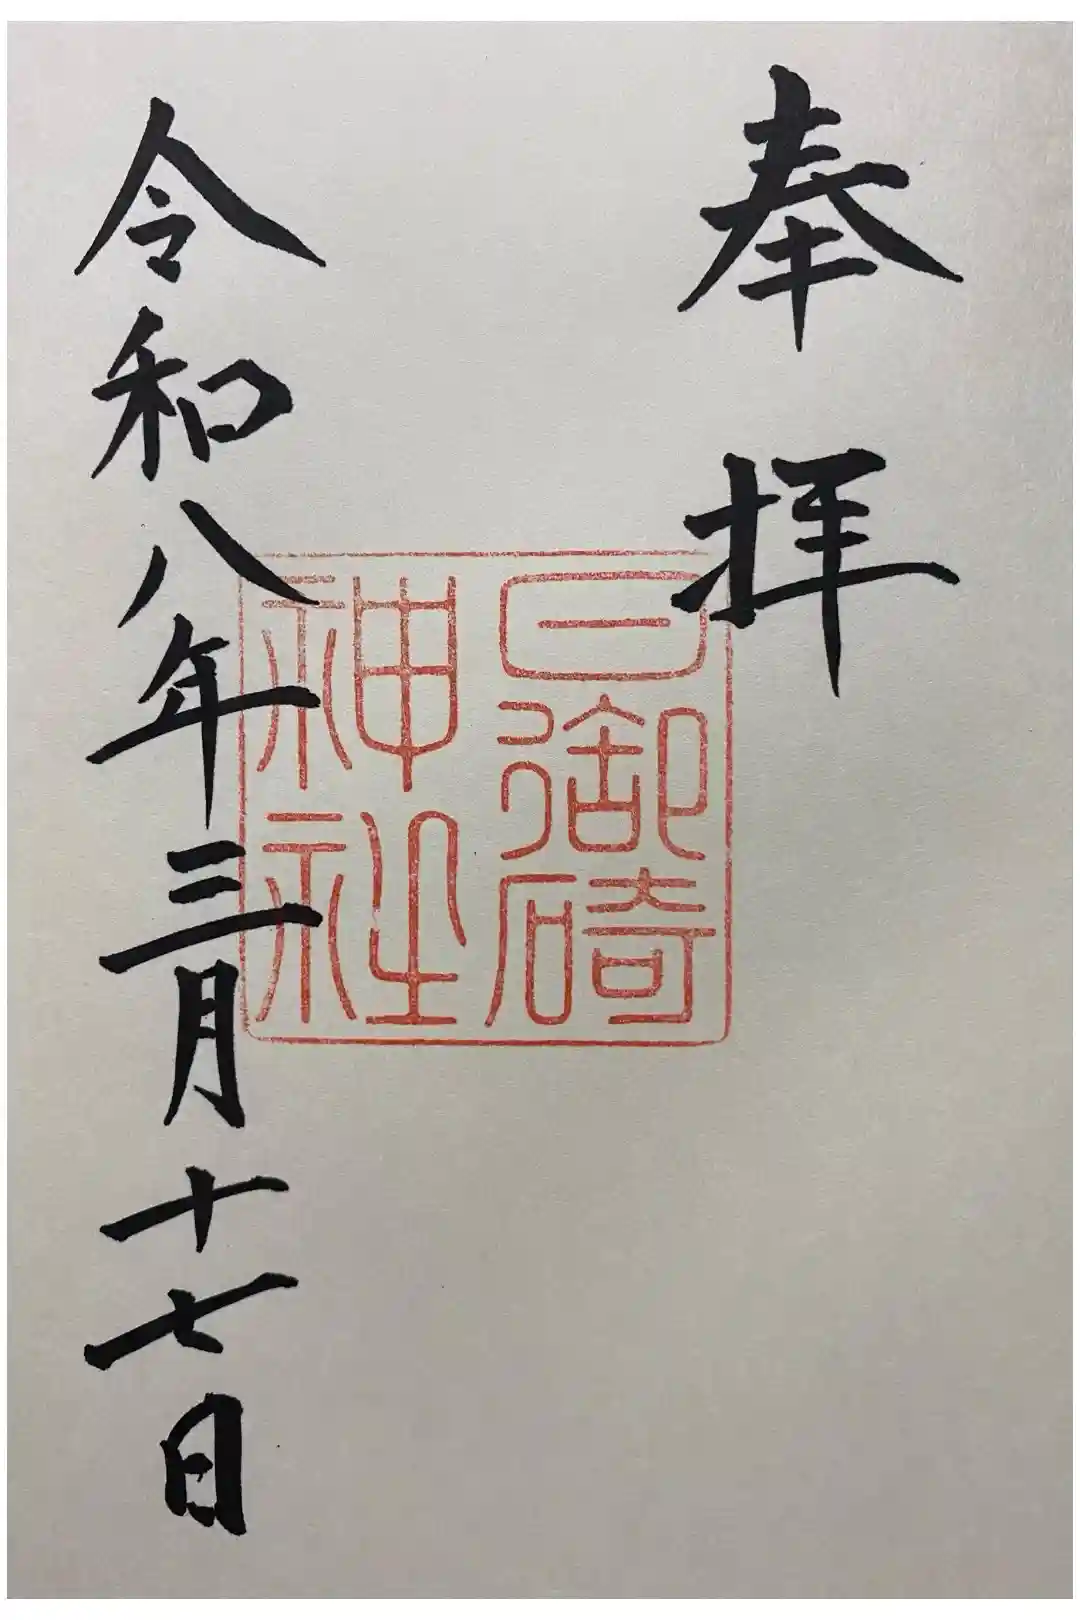 奉拝
日御碕
神社
令和八年三月十七日